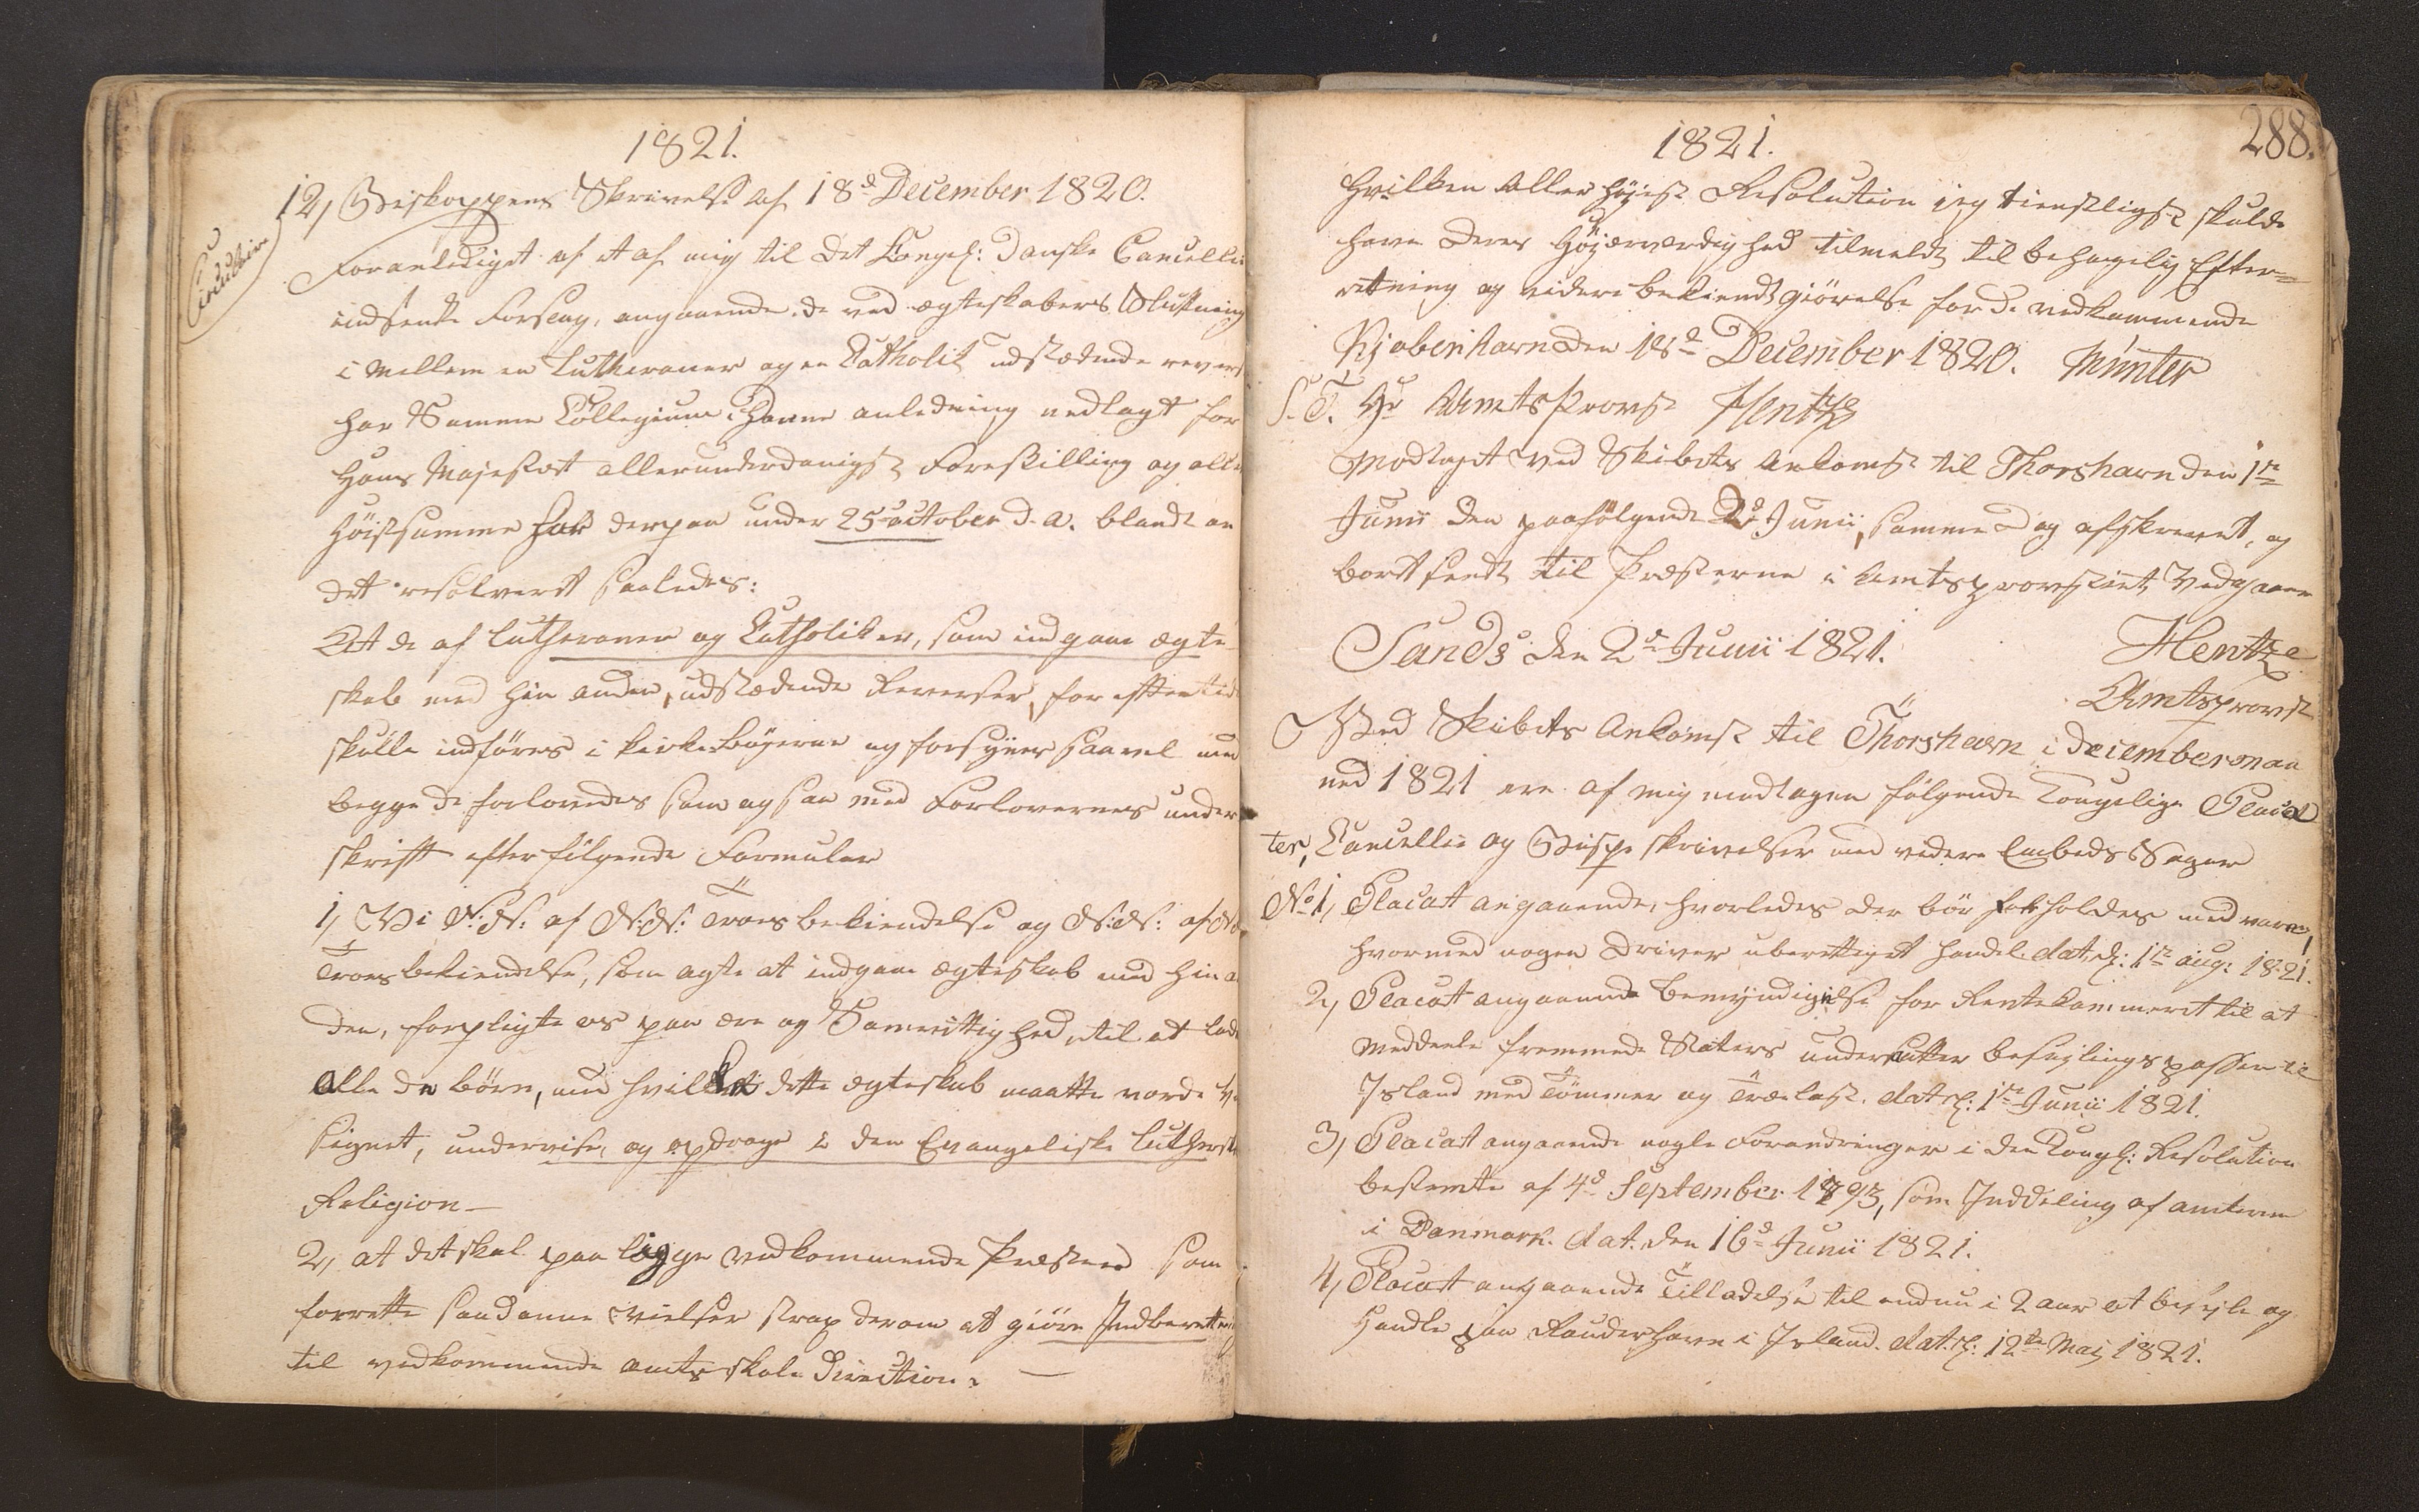 1821.
12, Biskoppens Skrivelse af 18d December 1820.
Circulaire
Foranlediget af et af mig til det Kongel: Danske Cancellie
indsendte Forslag, angaaende de ved ægteskabers Slutning
i mellem en Lutheraner og en Catholik udstædende revers
har Samme Collegium i Denne anledning nedlagt for
Hans Majestæt allerunderdanigst Forestilling og aller
Høistsamme har derpaa under 25 october d. A. blandt an
det resolveret saaledes:
At de af Lutheraner og Catholiker, som indgaae ægte
skab med hin anden, udstædende Reverser, for eftertid
skulle indføres i kirkebøgerne og forsynes saavel med
begge de forlovedes som og saa med Forlovernes under
skrift efter følgende Formular
1, Vi N:N: af N:N: Troes bekiendelse og N:N: af N
Troesbekiendelse, som agte at indgaae ægteskab med hin a
den, forpligte os paa ære og Samvittighed, til at lade
alle de børn, med hvilke dette ægteskab maatte vorde ve
signet, undervise, og opdrage i den Evangeliske Lutherske
Religion —
2, at det skal paa ligge vedkommende Præster som
forrette saadanne vielser strax derom at giöre Indberetning
til vedkommende amts skole Direction. —
1821.
288.
hvilken Allerhøjest Resolution jeg tienstligst skulde
have Deres Højærværdighed tilmeldt til behagelig Efter=
retning og videre bekiendtgiörelse for de vedkommende
Kjøbenhavn den 18d December 1820. Münter
S. T. Hr AmtsProvst Hentze
Modtaget ved Skibets Ankomst til Thorshavn den 1ste
Junii den paafølgende 2d Junii, samme Dag afskrevet, og
bortsendt til Præsterne i Amtsprovstiet, Vedgaaer
Sands den 2d Junii 1821.
Hentze
Amtsprovst
Ved Skibets Ankomst til Thorshavn i decembermaa
ned 1821 ere af mig modtagen følgende Kongelige Placa
ter, Cancellie og Bispe skrivelser med videre Embeds Sager
No 1, Placat angaaende, hvorledes der bör forholdes med varer,
hvormed nogen driver uberettiget Handel. dat. d: 1ste aug: 1821.
2, Placat angaaende bemyndigelse for Rentekammeret til at
meddeele fremmede Staters undersaatter besejlingspasser til
Island med Tömmer og Trælast. dat. d: 1ste Junii 1821.
3, Placat angaaende nogle Forandringer i den Kongl: Resolution
bestemte af 4d September 1793, som Inddeling af amterne
i Danmark. dat. den 16d Junii 1821.
4, Placat angaaende Tilladelse til endnu i 2 aar at besejle og
Handle paa Røuderhavn i Island. dat. d: 12te Maj 1821.